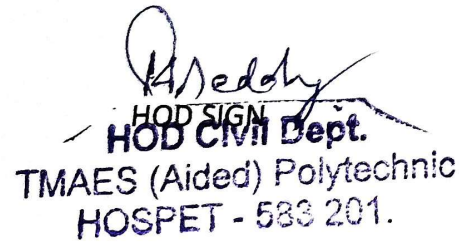 HOD SIGN
HOD Civil Dept.
TMAES (Aided) Polytechnic
HOSPET - 583 201.